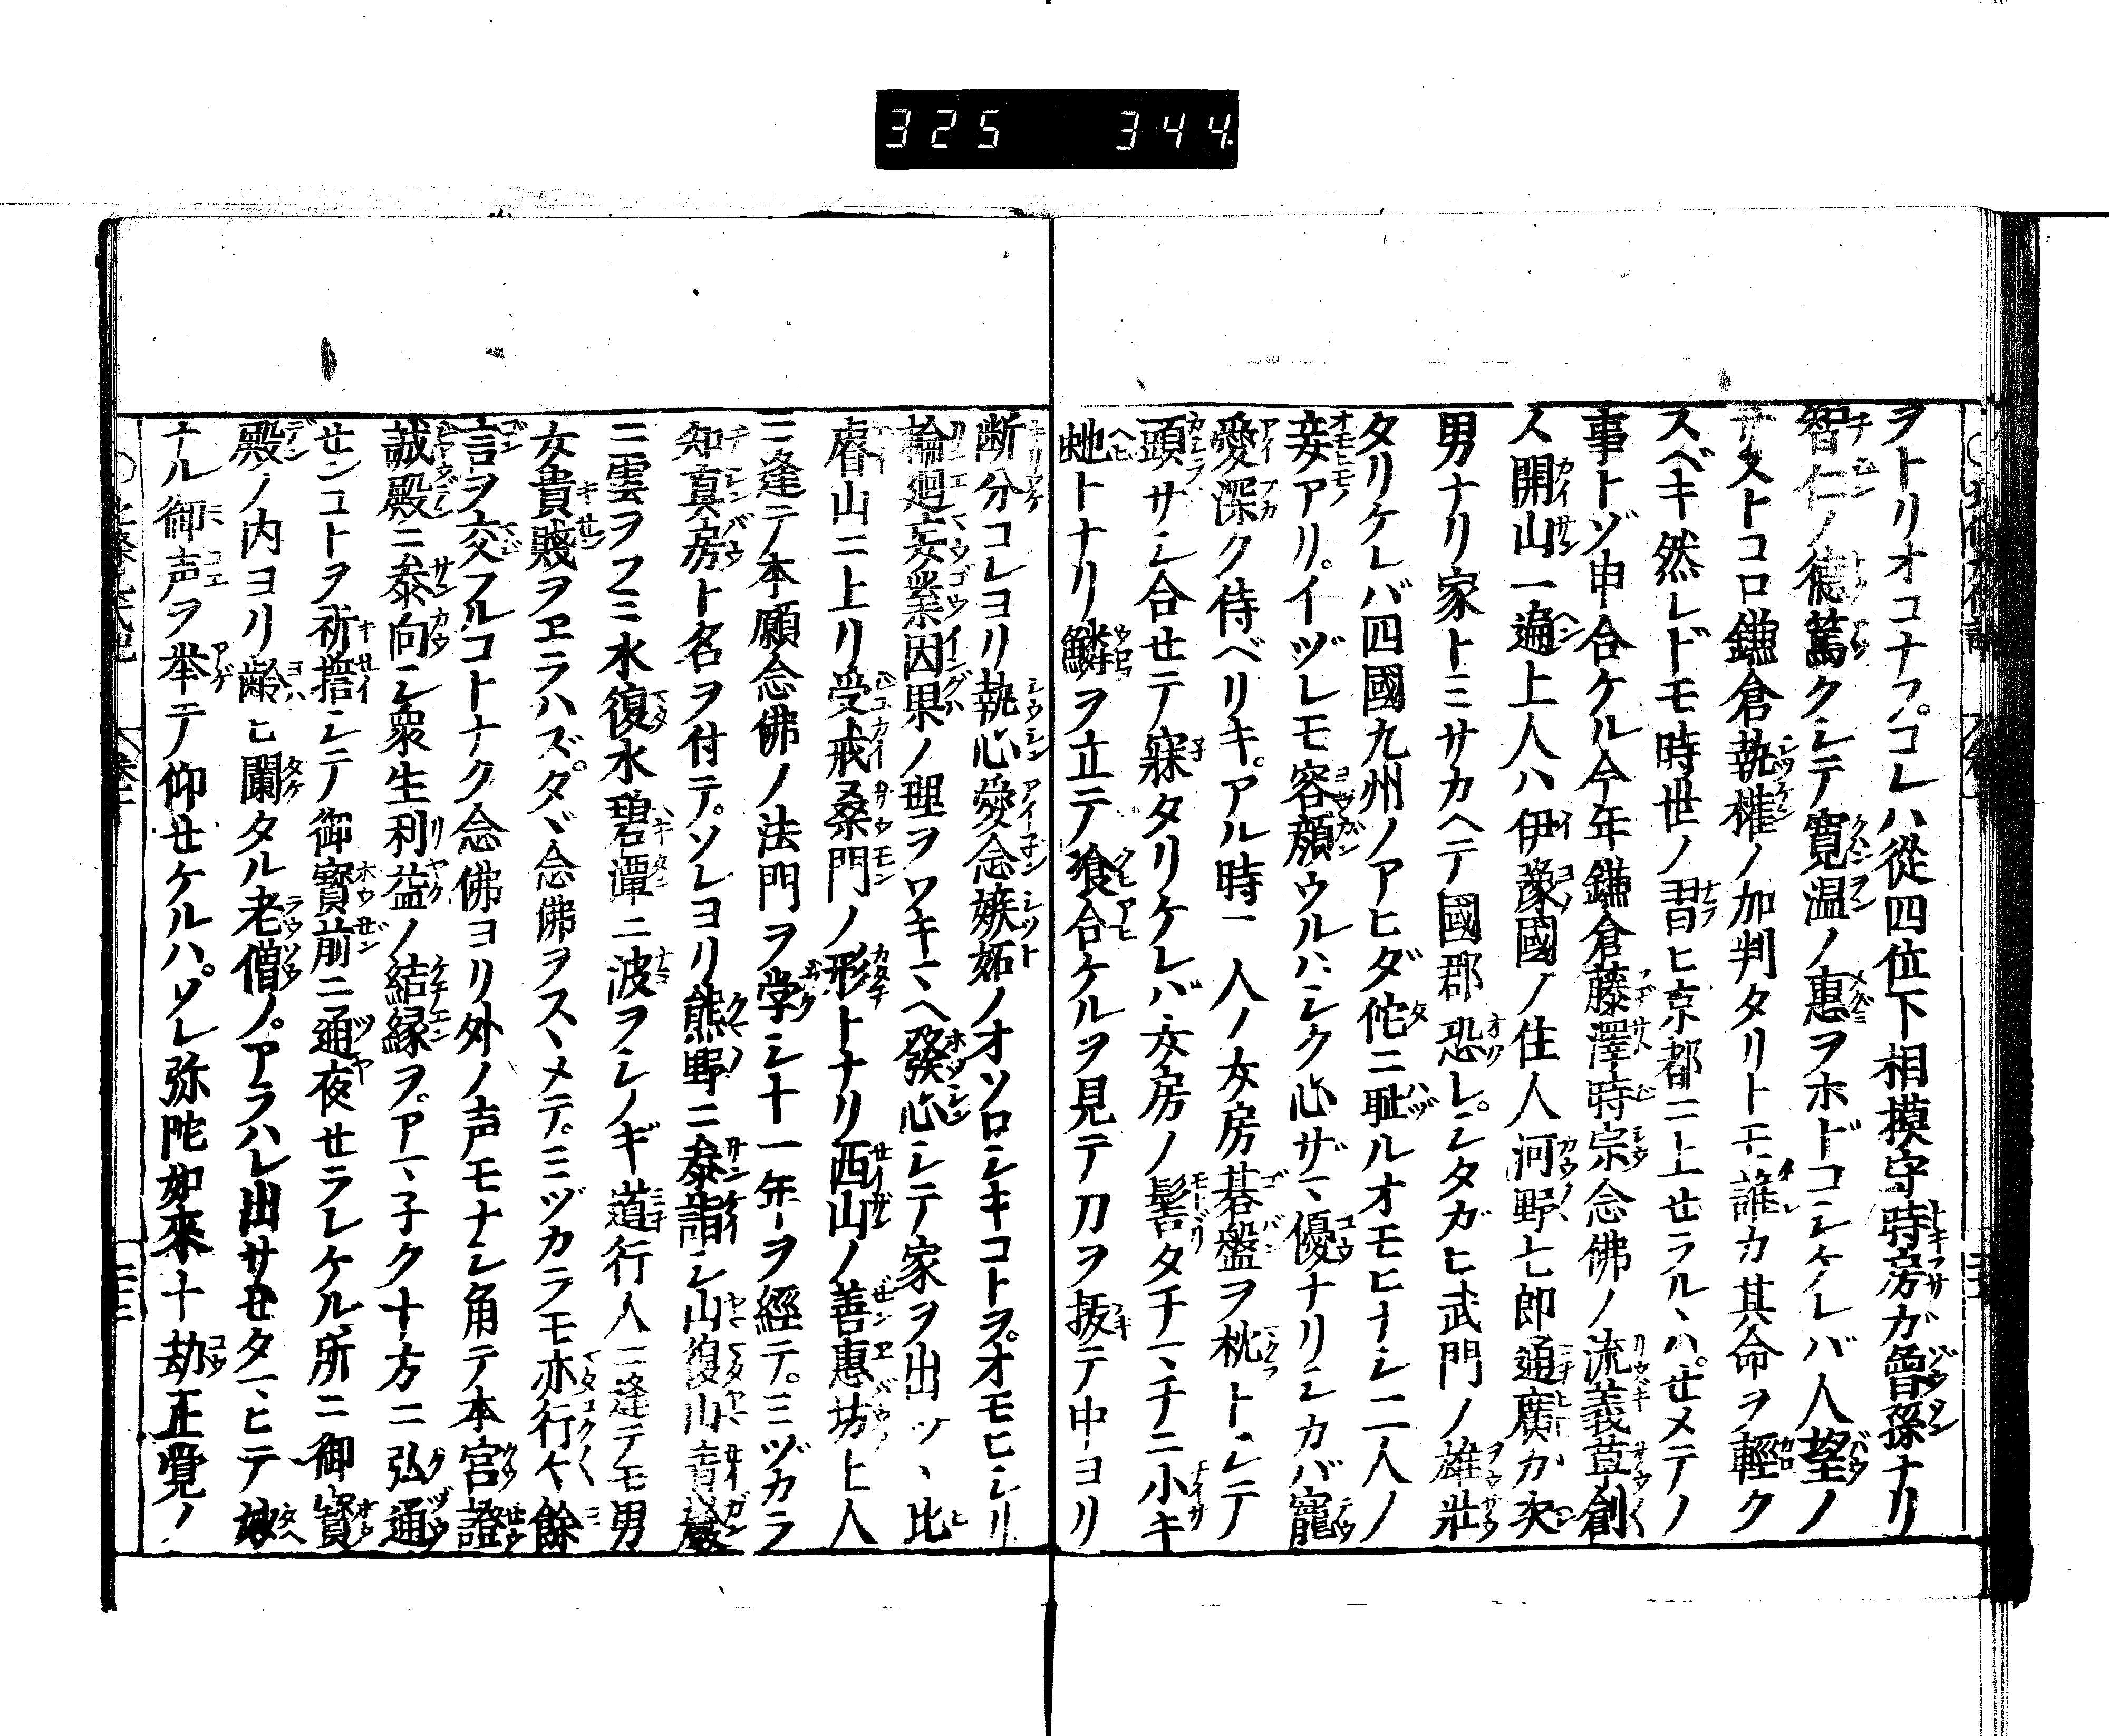 325 344
ヲトリオコナフ。コレハ從四位下相摸守時房ガ曾孫ナリ
智仁ノ徳篤クシテ寛温ノ惠ヲホドコシケレバ人望ノ
サストコロ鎌倉執權ノ加判タリトモ誰カ其命ヲ輕ク
スベキ然レドモ時世ノ習ヒ京都ニ上セラルヽハ。せメテノ
事トゾ申合ケル今年鎌倉藤澤時宗念佛ノ流義草創
ス開山一遍上人ハ伊豫國ノ住人河野七郎通廣カ次
男ナリ家トミサカヘテ國郡恐レ。シタガヒ武門ノ雄壯
タリケレバ四國九州ノアヒダ佗ニ耻ルオモヒナシ二人ノ
妾アリ。イヅレモ容顔ウルハシク心ザマ優ナリシカバ寵
愛深ク侍ベリキ。アル時二人ノ女房碁盤ヲ枕トシテ
頭サシ合せテ寐タリケレバ女房ノ髻タチマチニ小キ
虵トナリ鱗ヲ立テ飡合ケルヲ見テ刀ヲ拔テ中ヨリ
断分コレヨリ執心愛念嫉妬ノオソロシキコトヲ。オモヒシリ
輪廻妄業因果ノ理ヲワキマヘ發心シテ家ヲ出ツヽ比
睿山ニ上リ受戒桑門ノ形トナリ西山ノ善惠坊上人
ニ逢テ本願念佛ノ法門ヲ学シ十一年ヲ經テ。ミヅカラ
知真房ト名ヲ付テ。ソレヨリ熊野ニ参詣シ山復山青巖
ニ雲ヲフミ水復水碧潭ニ波ヲシノギ道行人ニ逢テモ男
女貴賤ヲヱラハズ。タヾ念佛ヲスヽメテ。ミヅカラモ亦行ク餘
言ヲ交フルコトナク念佛ヨリ外ノ声モナシ角テ本宮證
誠殿ニ参向シ衆生利益ノ結縁ヲ。アマ子ク十方ニ弘通
せンコトヲ祈誓シテノ御寳前ニ通夜せラレケル所ニ御寳
殿ノ内ヨリ齢ヒ闌タル老僧ノ。アラハレ出サせタマヒテ妙
ナル御声ヲ举テ仰せケルハ。ソレ弥陀如來十劫正覺ノ